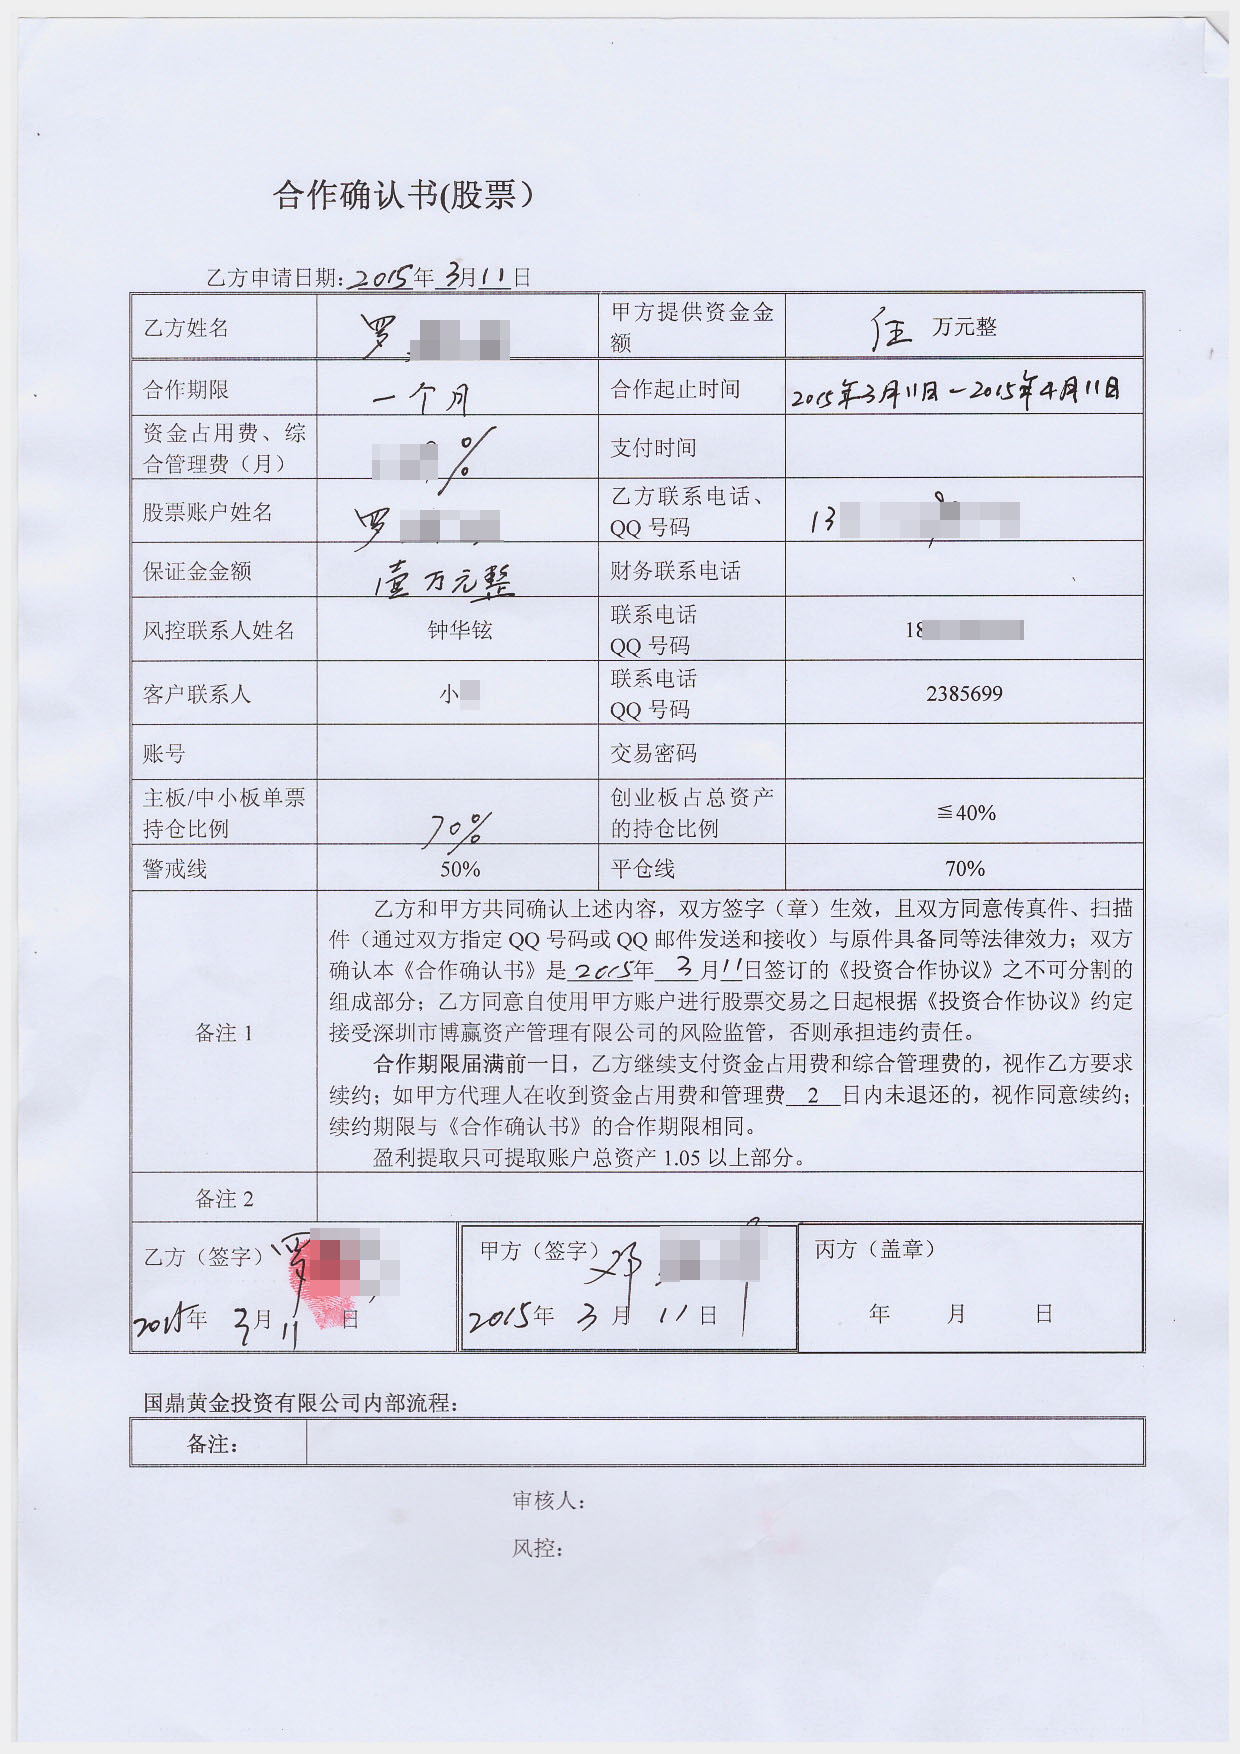 合作确认书(股票）
乙方申请日期:2015年3月11日
乙方姓名 罗 甲方提供资金金额 万元整
合作期限 一个月 合作起止时间 2015年3月11日－2015年4月11日
资金占用费、综合管理费（月） % 支付时间
股票账户姓名 罗 乙方联系电话、QQ 号码 13
保证金金额 壹万元整 财务联系电话
风控联系人姓名 钟华铉 联系电话 QQ 号码 18
客户联系人 小 联系电话 QQ 号码 2385699
账号 交易密码
主板/中小板单票持仓比例 70% 创业板占总资产的持仓比例 ≦40%
警戒线 50% 平仓线 70%
备注 1
乙方和甲方共同确认上述内容，双方签字（章）生效，且双方同意传真件、扫描
件（通过双方指定 QQ 号码或 QQ 邮件发送和接收）与原件具备同等法律效力；双方
确认本《合作确认书》是2015年 3 月11日签订的《投资合作协议》之不可分割的
组成部分；乙方同意自使用甲方账户进行股票交易之日起根据《投资合作协议》约定
接受深圳市博赢资产管理有限公司的风险监管，否则承担违约责任。
合作期限届满前一日，乙方继续支付资金占用费和综合管理费的，视作乙方要求
续约；如甲方代理人在收到资金占用费和管理费 2 日内未退还的，视作同意续约；
续约期限与《合作确认书》的合作期限相同。
盈利提取只可提取账户总资产 1.05 以上部分。
备注 2
乙方（签字）罗 甲方（签字）邓 丙方（盖章）
2015年 3月11日 2015年 3 月 11日 年 月 日
国鼎黄金投资有限公司内部流程：
备注：
审核人：
风控：